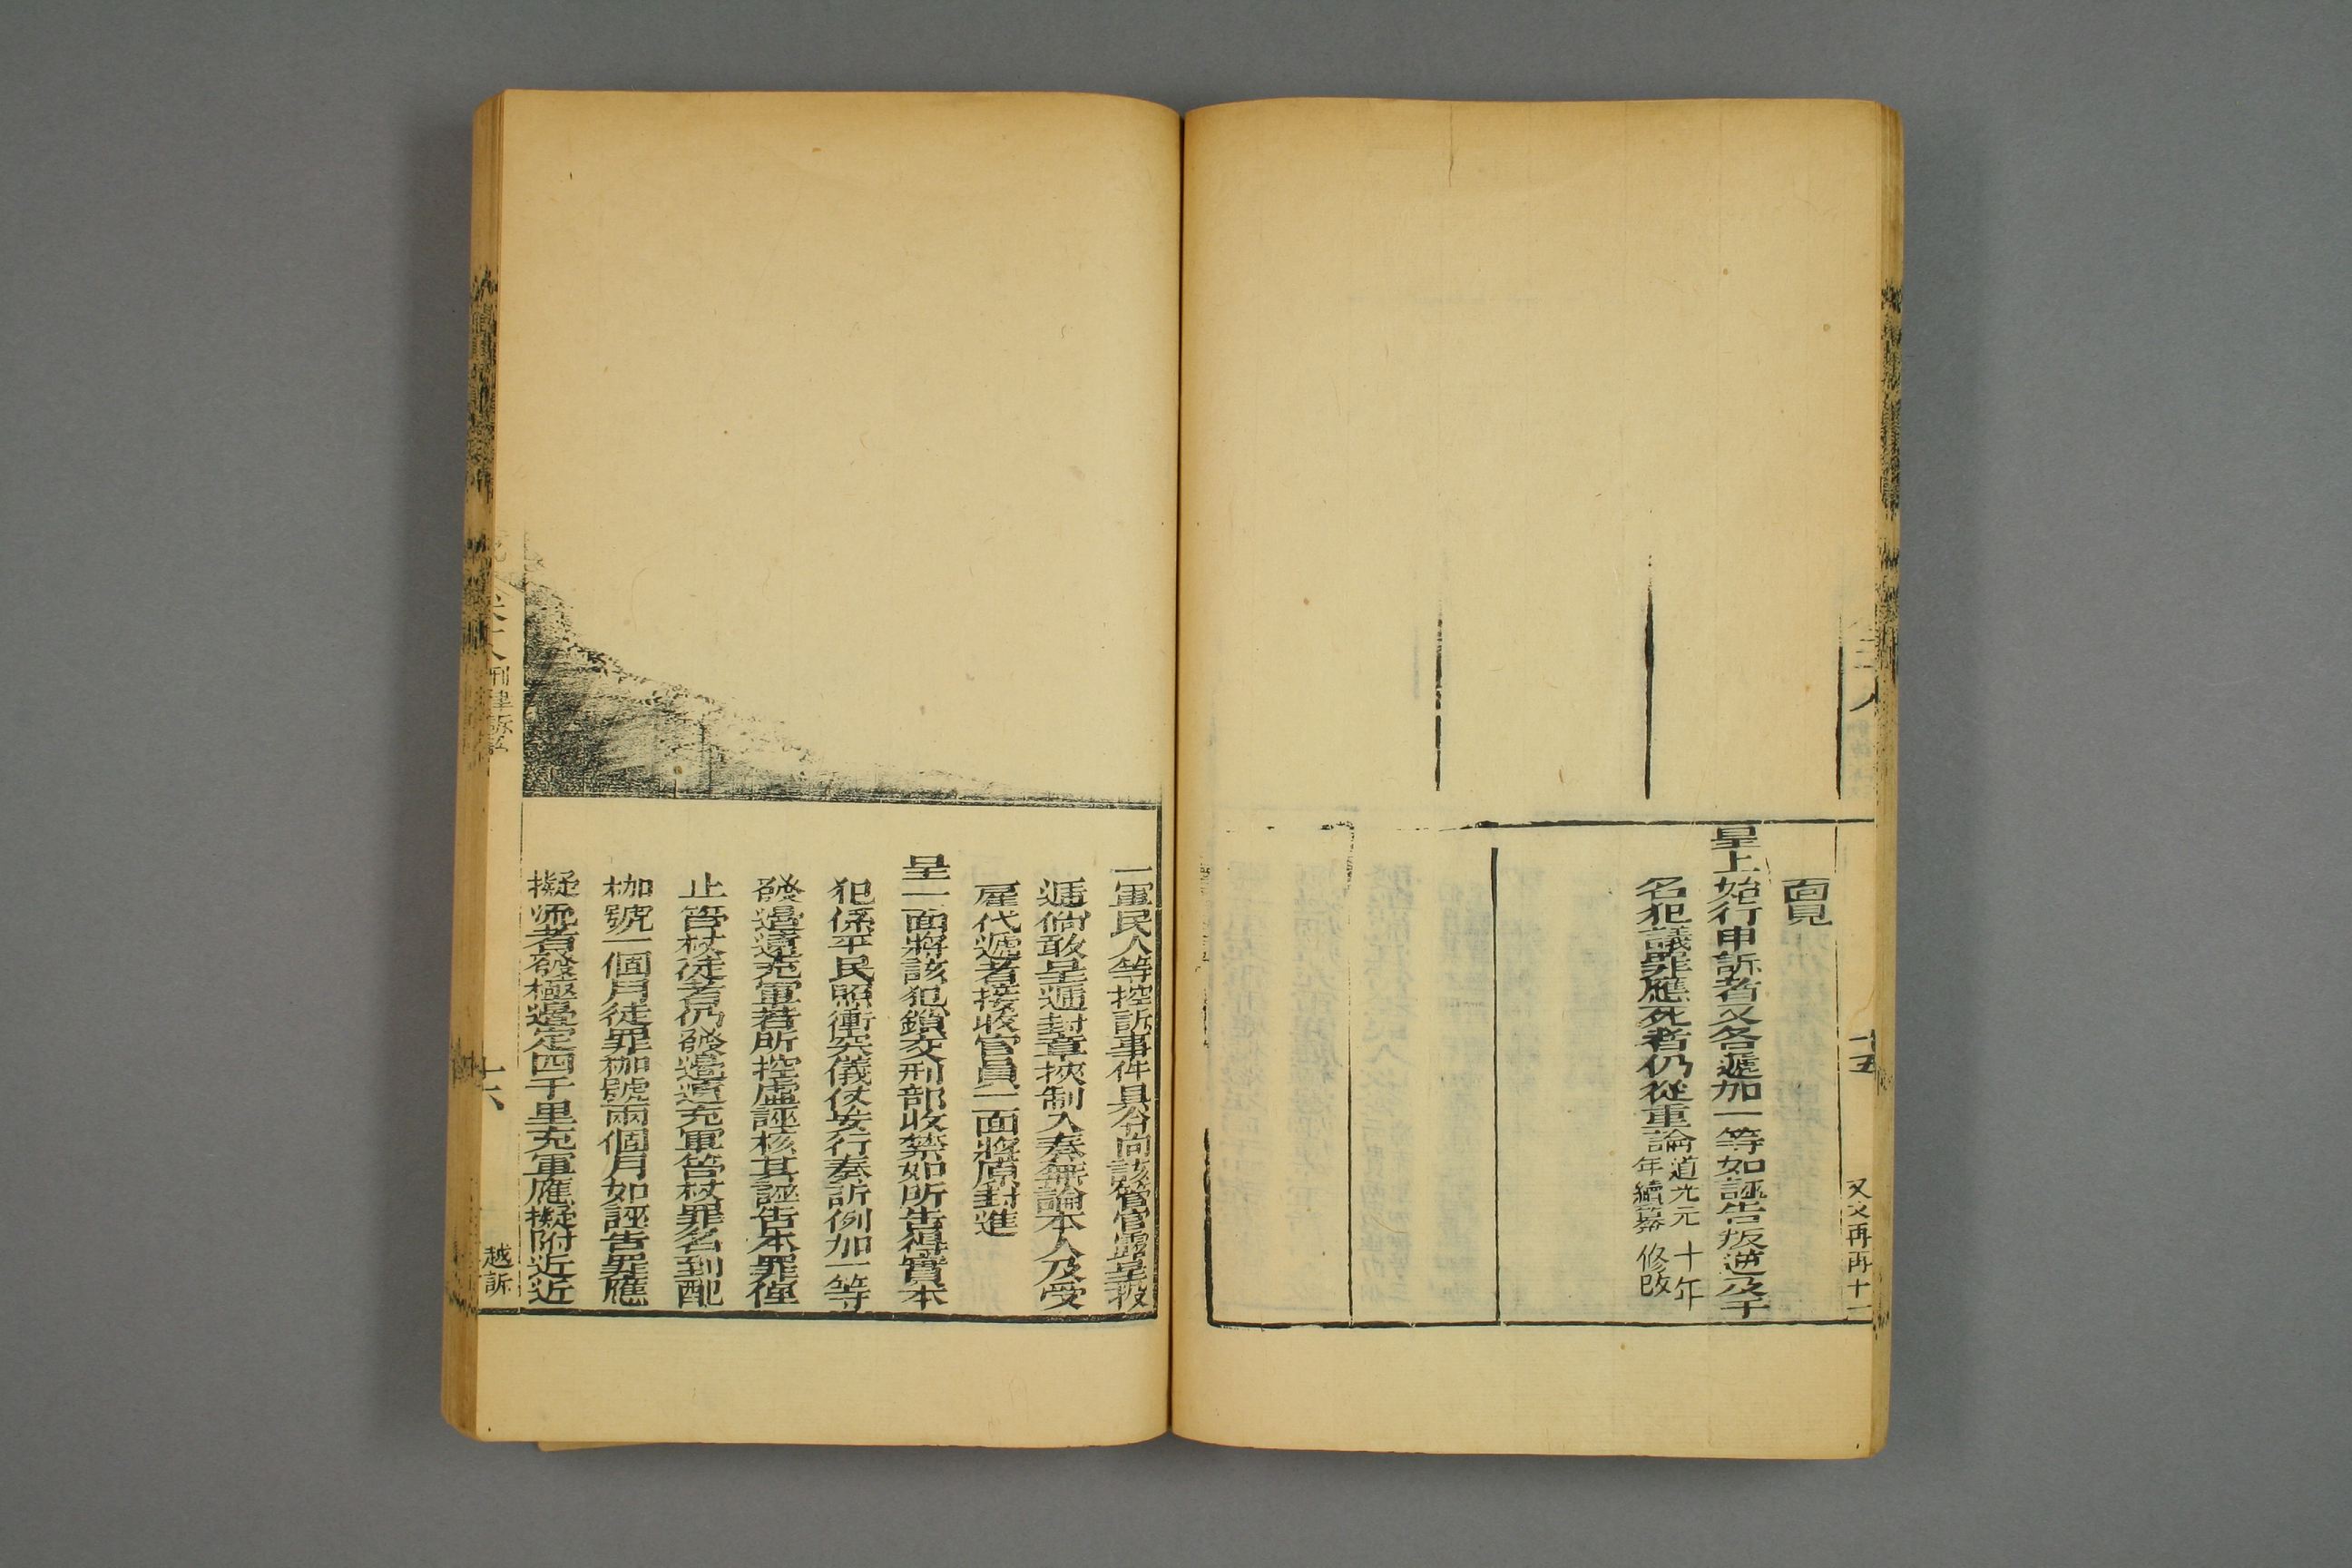 面見
皇上始行申訴者又各遞加一等如誣告叛逆及干
名犯議罪應死者仍從重論道光元年續纂 十年修改
十五
又又再再十一
一軍民人等控訴事件具呈向該管官露呈投
遞倘敢呈遞封章挾制入奏無論本人及受
雇代遞者接收官員一面將原封進
呈一面將該犯鎖交刑部收禁如所告得實本
犯係平民照衝突儀仗妄行奏訴例加一等
發邊遠充軍若所控虛誣核其誣告本罪僅
止笞杖徒者仍發邊遠充軍笞杖罪名到配
枷號一個月徒罪枷號兩個月如誣告罪應
擬流者發極邊足四千里充軍應擬附近近
刑律訴訟
十六
越訴